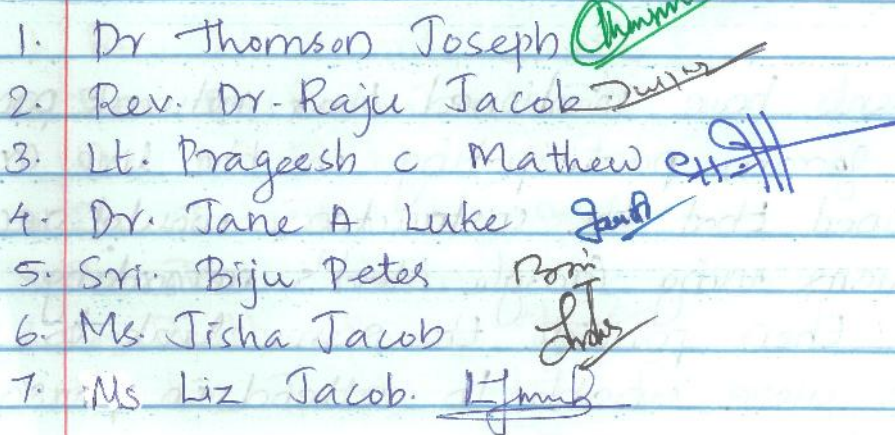 1. Dr Thomson Joseph
2. Rev. Dr. Raju Jacob
3. Lt. Prageesh C Mathew
4. Dr. Jane A Luke
5. Sri. Biju Peter
6. Ms. Jisha Jacob
7. Ms Liz Jacob.